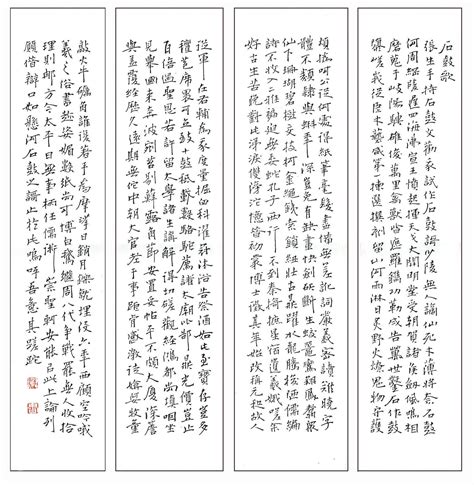 石鼓歌
張生手持石鼓文勸我試作石鼓歌少陵無人謫仙死才薄將奈石鼓
何周綱陵遲四海沸宣王憤起揮天戈大開明堂受朝賀諸侯劍佩鳴相
磨蒐于岐陽騁雄俊萬里禽獸皆遮羅鐫功勒成告萬世鑿石作鼓
隳嵯峨從臣才藝咸第一揀選撰刻留山阿雨淋日炙野火燎鬼物守護
煩撝呵公從何處得紙本毫髮盡備無差訛詞嚴義密讀難曉字
體不類隸與蝌年深豈免有缺畫快劍斫斷生蛟鼉鸞翔鳳翥眾
仙下珊瑚碧樹交枝柯金繩鐵索鎖鈕壯古鼎躍水龍騰梭陋儒編
詩不收入二雅褊迫無委蛇孔子西行不到秦掎摭星宿遺羲娥嗟余
好古生苦晚對此涕淚雙滂沱憶昔初蒙博士徵其年始改稱元和故人
從軍在右輔為我度量掘臼科濯冠沐浴告祭酒如此至寶存豈多
氈包席裹可立致十鼓祇載數駱駝薦諸太廟比郜鼎光價豈止
百倍過聖恩若許留太學諸生講解得切磋觀經鴻都尚填咽坐
見舉國來奔波剜苔剔蘚露節角安置妥帖平不頗大廈深簷
與蓋覆經歷久遠期無佗中朝大官老于事詎肯感激徒媕婀牧童
敲火牛礪角誰復著手為摩挲日銷月鑠就埋沒六年西顧空吟哦
羲之俗書趁姿媚數紙尚可博白鵝繼周八代爭戰罷無人收拾
理則那方今太平日無事柄任儒術崇聖軻安能以此上論列
願借辯口如懸河石鼓之歌止於此嗚呼吾意其蹉跎